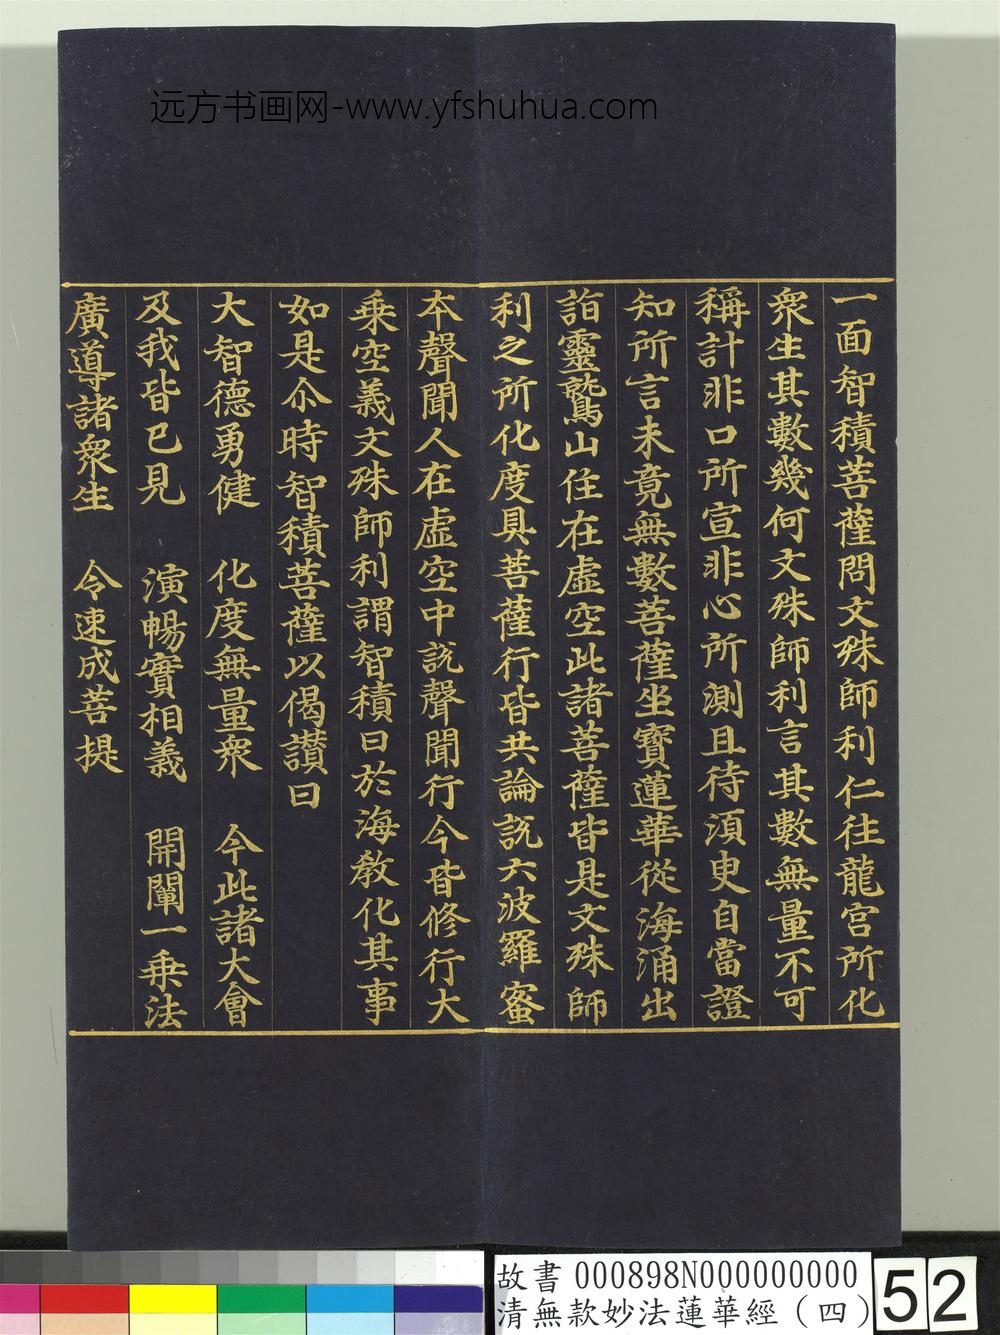 远方书画网-www.yfshuhua.com
一面智積菩薩問文殊師利仁往龍宮所化
衆生其數幾何文殊師利言其數無量不可
稱計非口所宣非心所測且待須臾自當證
知所言未竟無數菩薩坐寶蓮華從海涌出
詣靈鷲山住在虛空此諸菩薩皆是文殊師
利之所化度具菩薩行皆共論說六波羅蜜
本聲聞人在虛空中說聲聞行今皆修行大
乘空義文殊師利謂智積曰於海教化其事
如是尒時智積菩薩以偈讚曰
大智德勇健　化度無量衆　今此諸大會
及我皆已見　演暢實相義　開闡一乘法
廣導諸衆生　令速成菩提
故書 000898N000000000
清無款妙法蓮華經（四）
52